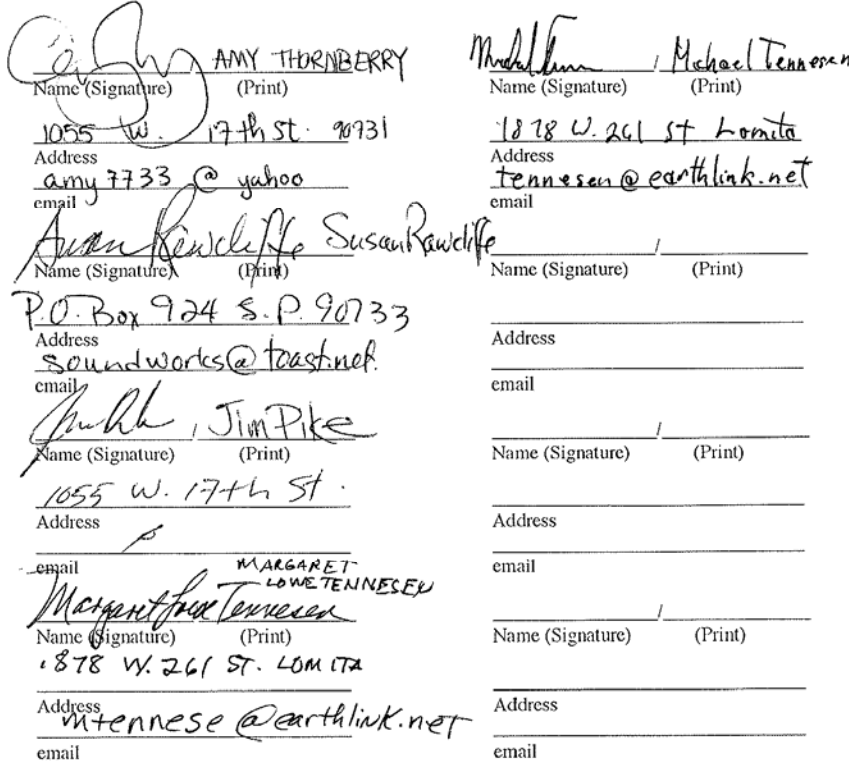 AMY THORNBERRY
Name (Signature) / (Print)
1055 W. 17th St. 90731
Address
amy7733@yahoo
email
Susan Rawcliffe Susan Rawcliffe
Name (Signature) (Print)
P.O. Box 924 S.P. 90733
Address
soundworks@toast.net
email
/ Jim Pike
Name (Signature) (Print)
1055 W. 17th St.
Address
email
MARGARET
LOWE TENNESEN
Margaret Lowe Tennesen
Name (Signature) (Print)
1878 W. 261 ST. LOMITA
Address
mtennese@earthlink.net
email
/ Michael Tennesen
Name (Signature) (Print)
1878 W. 261 St Lomita
Address
tennesen@earthlink.net
email
/
Name (Signature) (Print)
Address
email
/
Name (Signature) (Print)
Address
email
/
Name (Signature) (Print)
Address
email